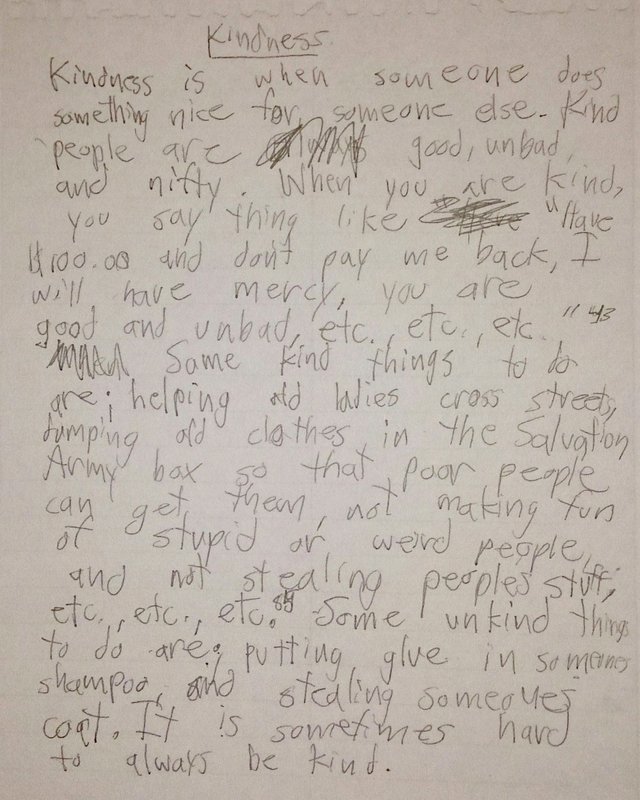 Kindness
Kindness is when someone does
something nice for someone else. Kind
people are good, unbad,
and nifty. When you are kind,
you say thing like "Have
$100.00 and don't pay me back, I
will have mercy, you are
good and unbad, etc., etc., etc."
Some kind things to do
are; helping old ladies cross streets,
dumping old clothes in the Salvation
Army box so that poor people
can get them, not making fun
of stupid or weird people,
and not stealing peoples stuff,
etc., etc., etc. Some unkind things
to do are; putting glue in someones
shampoo, and stealing someones
coat. It is sometimes hard
to always be kind.